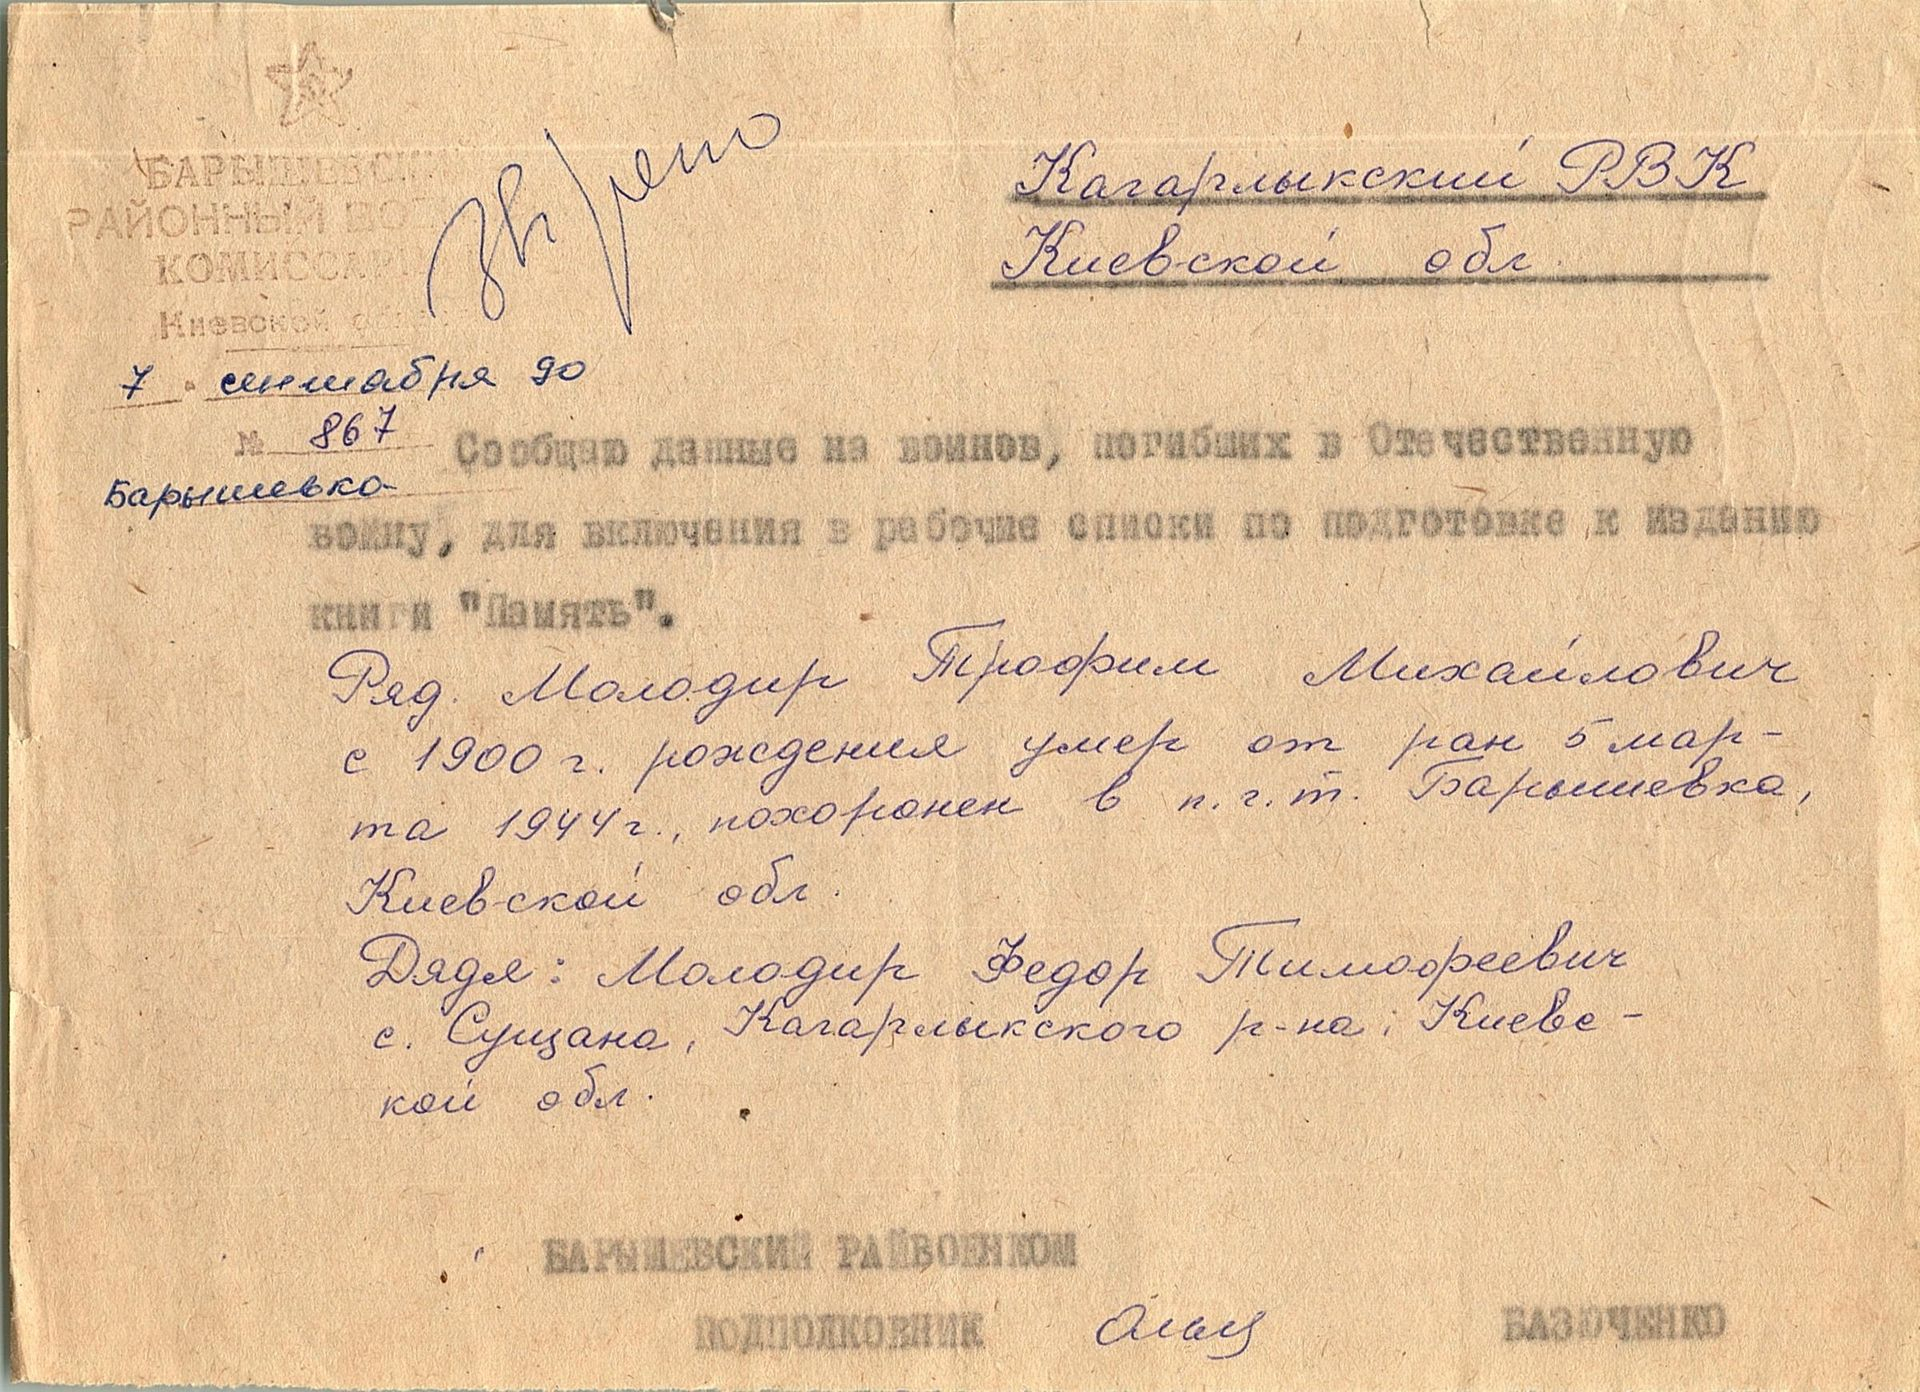 БАРЫШЕВСКИЙ
РАЙОННЫЙ ВОЕ
КОМИССАРИ
Киевской области
7 сентября 90
№ 867
Барышевка
Звірено
Кагарлыкский РВК
Киевской обл.
Сообщаю данные на воинов, погибших в Отечественную
войну, для включения в рабочие списки по подготовке к изданию
книги "Память".
Ряд. Молодир Трофим Михайлович
с 1900 г. рождения умер от ран 5 мар-
та 1944 г., похоронен в п.г.т. Барышевка,
Киевской обл.
Дядя: Молодир Федор Тимофеевич
с. Сущана, Кагарлыкского р-на, Киевс-
кой обл.
БАРЫШЕВСКИЙ РАЙВОЕНКОМ
ПОДПОЛКОВНИК БАЗЮЧЕНКО